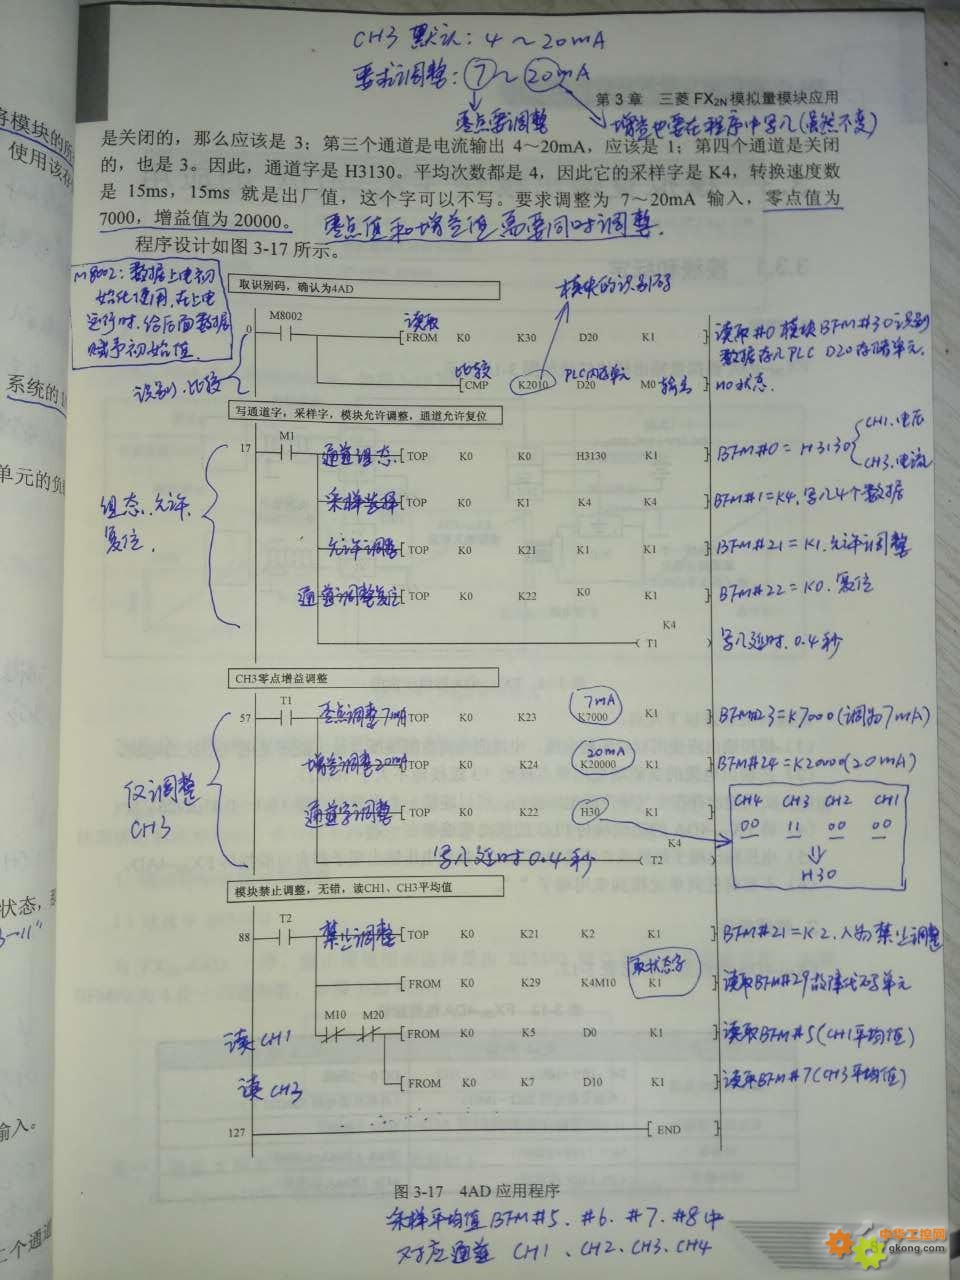 CH3 默认: 4 ~ 20mA
要求调整: 7 ~ 20mA
第 3 章 三菱 FX2N 模拟量模块应用
零点要调整
增益也要在程序中写入(虽然不变)
是关闭的，那么应该是 3；第三个通道是电流输出 4～20mA，应该是 1；第四个通道是关闭
的，也是 3。因此，通道字是 H3130。平均次数都是 4，因此它的采样字是 K4，转换速度数
是 15ms，15ms 就是出厂值，这个字可以不写。要求调整为 7～20mA 输入，零点值为
7000，增益值为 20000。 零点值和增益值需要同时调整.
程序设计如图 3-17 所示。
M8002: 数据上电初
始化使用.在上电
运行时.给后面数据
赋予初始值.
识别.比较
取识别码，确认为4AD
模块的识别码
0 M8002 读取 FROM K0 K30 D20 K1
读取#0模块BFM#30识别
数据存入PLC D20存储单元.
比较 CMP K2010 PLC内存单元 D20 M0 输出 M0状态.
写通道字，采样字，模块允许调整，通道允许复位
17 M1 通道组态 TOP K0 K0 H3130 K1 BFM#0 = H3130
CH1.电压
CH3.电流
组态.允许.
复位.
采样选择 TOP K0 K1 K4 K4 BFM#1=K4.写入4个数据
允许调整 TOP K0 K21 K1 K1 BFM#21=K1.允许调整
通道调整复位 TOP K0 K22 K0 K1 BFM#22=K0.复位
K4
T1 写入延时.0.4秒
CH3零点增益调整
57 T1 零点调整7mA TOP K0 K23 7mA K7000 K1 BFM#23=K7000(调为7mA)
增益调整20mA TOP K0 K24 20mA K20000 K1 BFM#24=K20000(20mA)
仅调整
CH3
通道字调整 TOP K0 K22 H30 K1
CH4 CH3 CH2 CH1
00 11 00 00
H30
K4
写入延时0.4秒 T2
模块禁止调整，无错，读CH1、CH3平均值
88 T2 禁止调整 TOP K0 K21 K2 K1 BFM#21=K2.人为禁止调整
取状态字
FROM K0 K29 K4M10 K1 读取BFM#29故障代码单元
读CH1 M10 M20 FROM K0 K5 D0 K1 读取BFM#5(CH1平均值)
读CH3 FROM K0 K7 D10 K1 读取BFM#7(CH3平均值)
127 END
图 3-17 4AD 应用程序
采样平均值BFM#5. #6. #7. #8中
对应通道 CH1、CH2、CH3、CH4
中华工控网
gkong.com
将模块的
使用该
系统的
单元的负
状态，
3→11"
输入。
二个通道